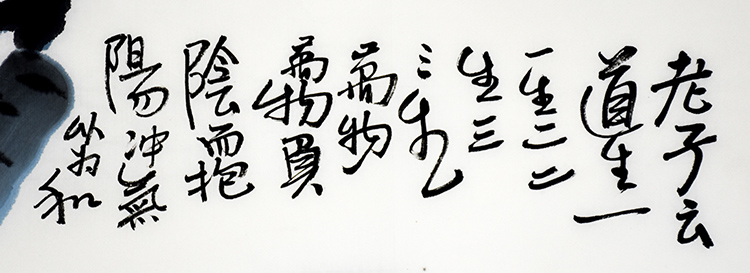 老子云
道生一
一生二二
生三
三生
萬物
萬物負
陰而抱
陽冲氣
以为和